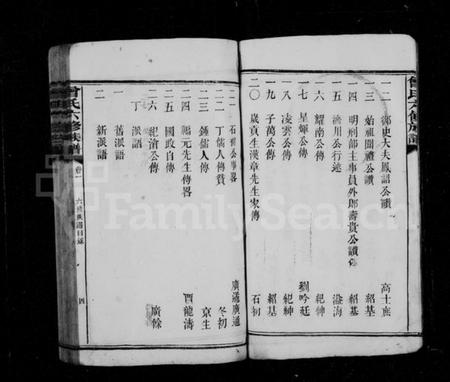 曾氏六修族譜
一二 御史大夫鳳韶公讚 高士鹿
一三 始祖闢禮公讚 紹基
一四 明刑部主事員外郎壽貴公讚 紹基
一五 濟川公行述 溢海
一六 耀南公傳 紀紳
一七 星煇公傳 劉吟廷
一八 凌雲公傳 紀紳
一九 子萬公傳 紹基
二〇 歲貢生漢章先生家傳 石初
二一 石獅公事畧 廣湯廣通
二二 丁儒人傳贊 冬初
二三 鍾儒人傳 京生
二四 福元先生傳畧 酉龍濤
二五 國政自傳
二六 紀滄公傳 廣餘
丁 派語
一 舊派語
二 新派語
曾氏六修族譜
卷一
六修族譜目錄
四
FamilySearch